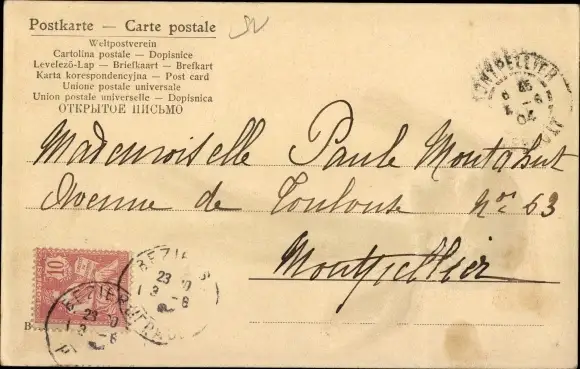 Postkarte — Carte postale
Weltpostverein
Cartolina postale — Dopisnice
Levelező-Lap — Briefkaart — Brefkort
Karta korespondencyjna — Post card
Unione postale universale
Union postale universelle — Dopisnica
ОТКРЫТОЕ ПИСЬМО
MONTPELLIER
Mademoiselle Paule
Avenue de Toulouse No 63
Montpellier
10
BEZIERS
23
BEZIERS
23
B